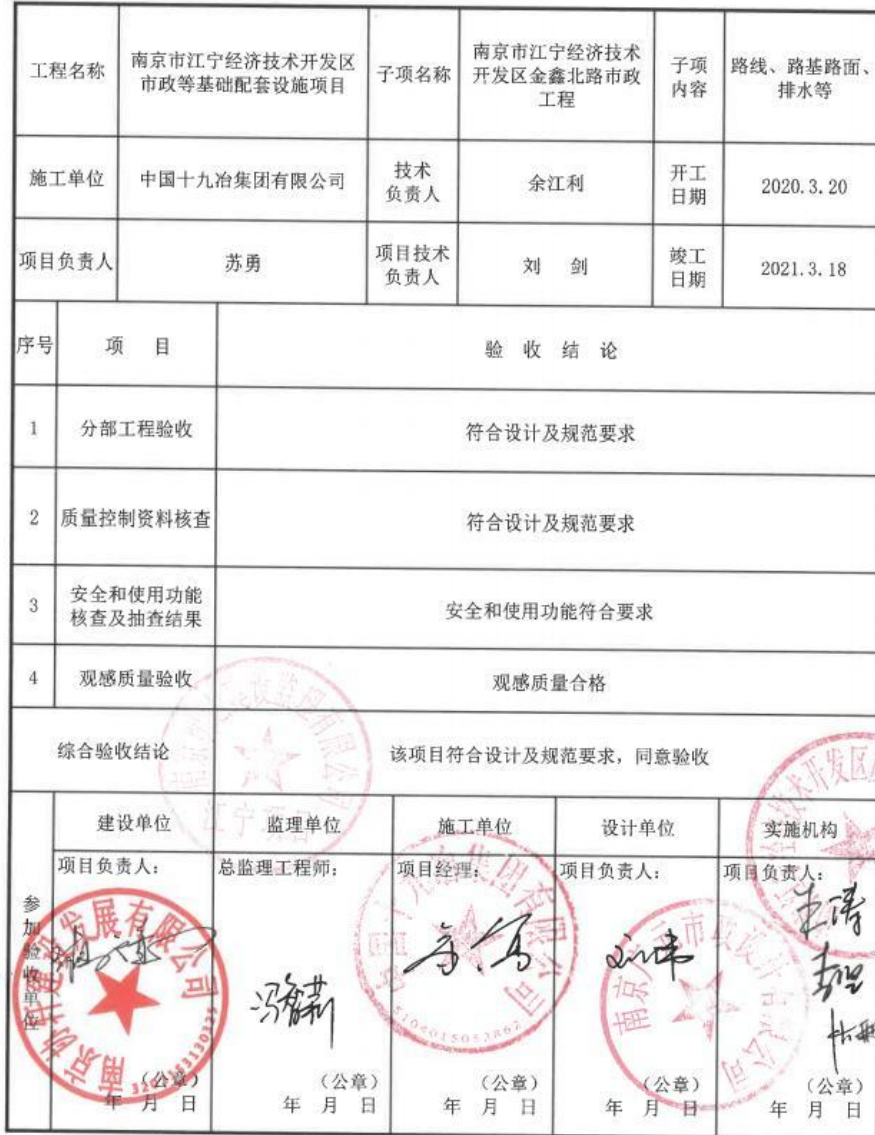 工程名称
南京市江宁经济技术开发区
市政等基础配套设施项目
子项名称
南京市江宁经济技术
开发区金鑫北路市政
工程
子项
内容
路线、路基路面、
排水等
施工单位
中国十九冶集团有限公司
技术
负责人
余江利
开工
日期
2020.3.20
项目负责人
苏勇
项目技术
负责人
刘 剑
竣工
日期
2021.3.18
序号
项 目
验 收 结 论
1
分部工程验收
符合设计及规范要求
2
质量控制资料核查
符合设计及规范要求
3
安全和使用功能
核查及抽查结果
安全和使用功能符合要求
4
观感质量验收
观感质量合格
综合验收结论
该项目符合设计及规范要求，同意验收
参加验收单位
建设单位
监理单位
施工单位
设计单位
实施机构
项目负责人：
总监理工程师：
项目经理：
项目负责人：
项目负责人：
（公章）
年 月 日
（公章）
年 月 日
（公章）
年 月 日
（公章）
年 月 日
（公章）
年 月 日